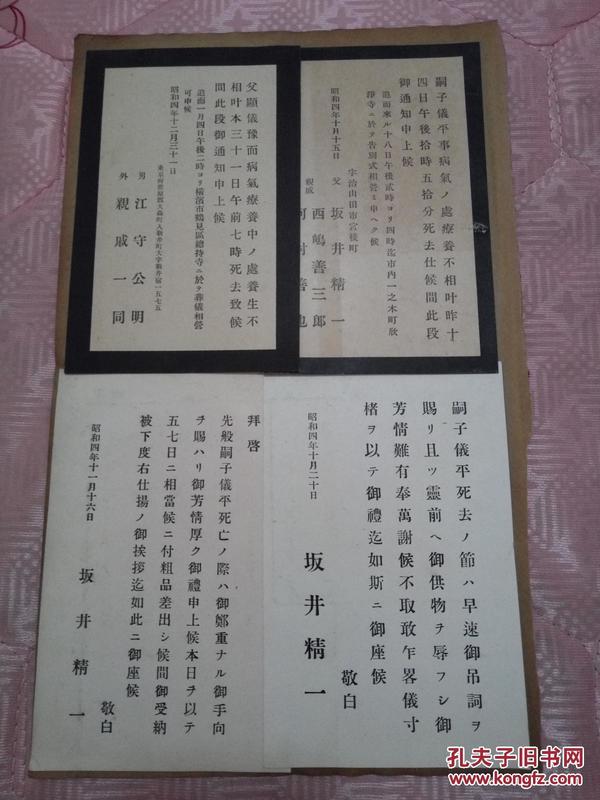 嗣子儀平事病氣ノ處療養不相叶昨十
四日午後拾時五拾分死去仕候間此段
御通知申上候
追而來ル十八日午後貳時ヨリ四時迄市內一之木町欣
淨寺ニ於テ告別式相營ミ申ヘク候
昭和四年十月十五日
宇治山田市宮後町
父 坂井精一
親戚 西嶋善三郎
父顯儀豫而病氣療養中ノ處養生不
相叶本三十一日午前七時死去致候
間此段御通知申上候
追而一月四日午後二時ヨリ橫濱市鶴見區總持寺ニ於テ葬儀相營
可申候
昭和四年十二月三十一日
東京府荏原郡大森町入新井町大字新井宿一五七五
男 江守公明
外 親戚一同
嗣子儀平死去ノ節ハ早速御吊詞ヲ
賜リ且ツ靈前ヘ御供物ヲ辱フシ御
芳情難有奉萬謝候不取敢乍畧儀寸
楮ヲ以テ御禮迄如斯ニ御座候
敬白
昭和四年十月二十日
坂井精一
拜啓
先般嗣子儀平死亡ノ際ハ御鄭重ナル御手向
ヲ賜ハリ御芳情厚ク御禮申上候本日ヲ以テ
五七日ニ相當候ニ付粗品差出シ候間御受納
被下度右仕揚ノ御挨拶迄如此ニ御座候
敬白
昭和四年十一月十六日
坂井精一
孔夫子旧书网
www.kongfz.com